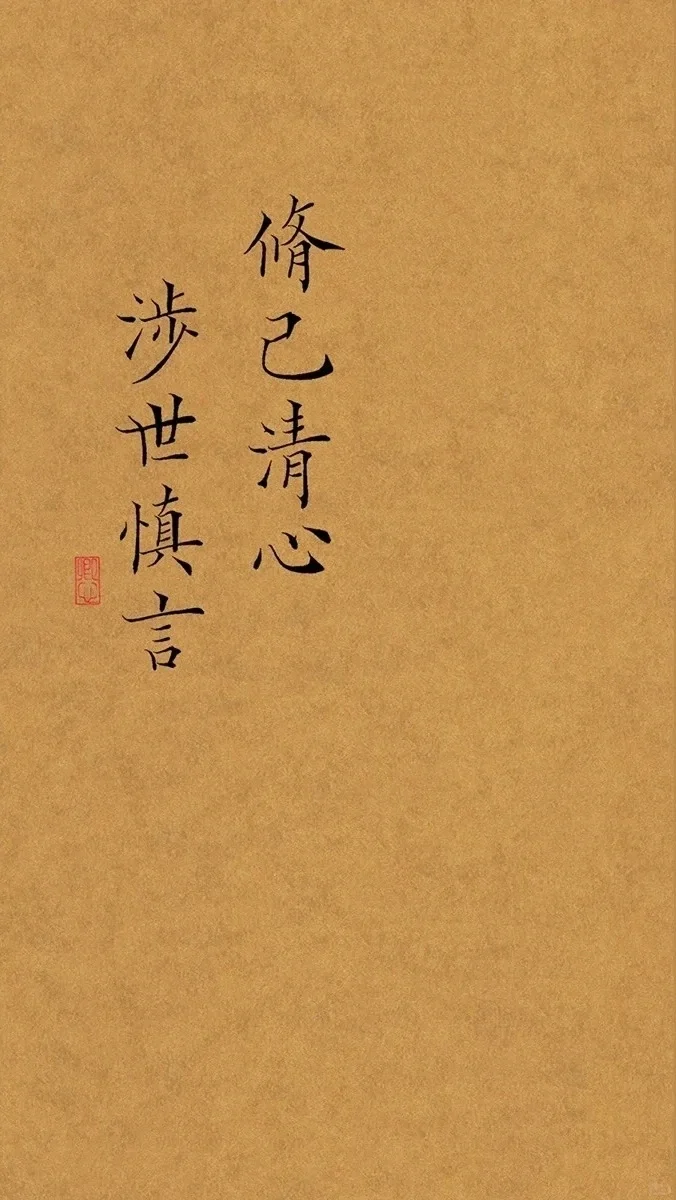 脩己清心
涉世慎言